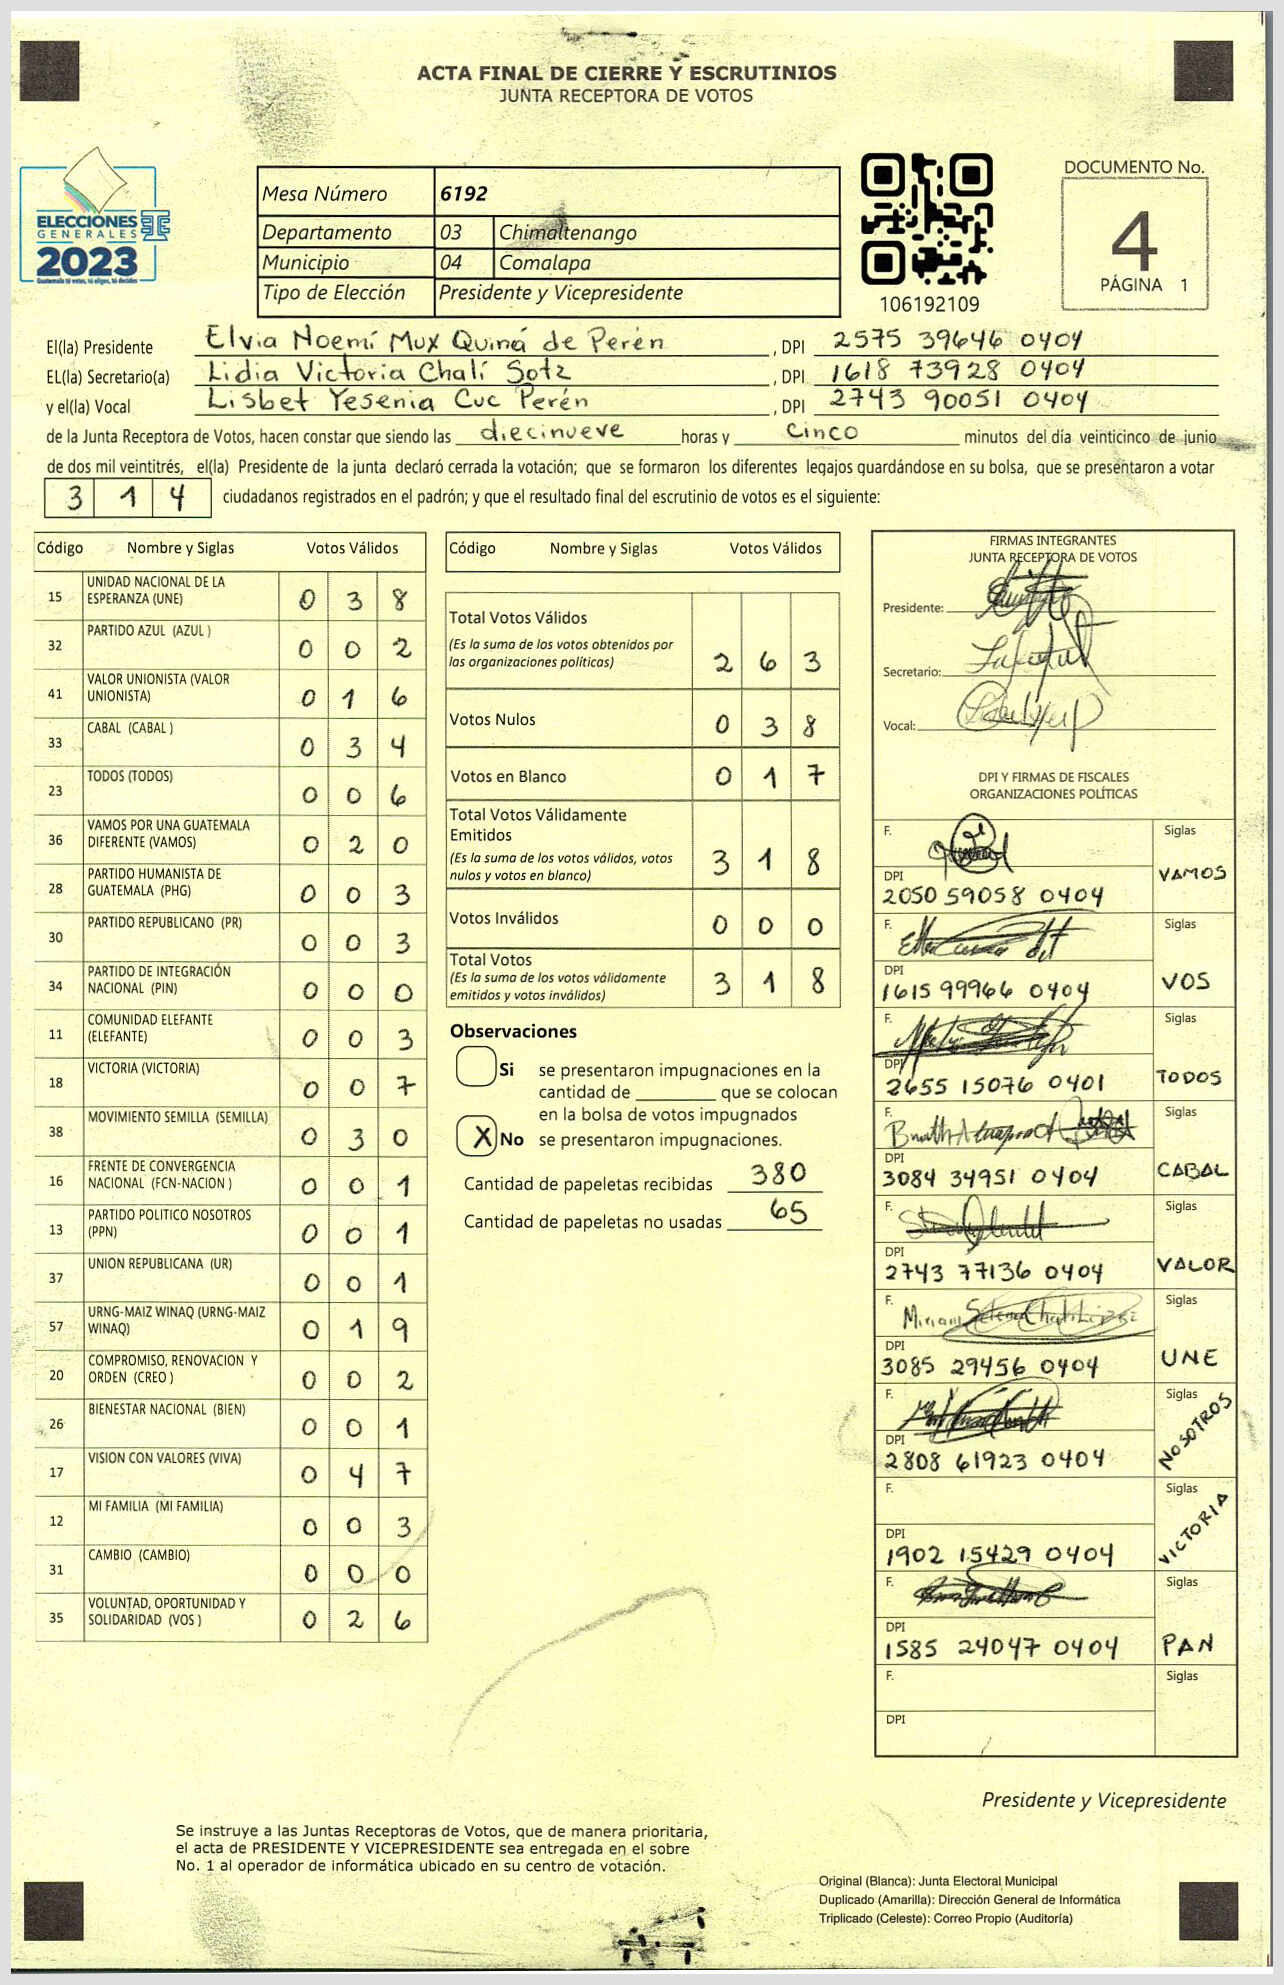 ACTA FINAL DE CIERRE Y ESCRUTINIOS
JUNTA RECEPTORA DE VOTOS
ELECCIONES
GENERALES
2023
Guatemala tú votas, tú eliges, tú decides
Mesa Número 6192
Departamento 03 Chimaltenango
Municipio 04 Comalapa
Tipo de Elección Presidente y Vicepresidente
106192109
DOCUMENTO No.
4
PÁGINA 1
El(la) Presidente Elvia Noemí Mux Quiná de Perén , DPI 2575 39646 0404
EL(la) Secretario(a) Lidia Victoria Chalí Sotz , DPI 1618 73928 0404
y el(la) Vocal Lisbet Yesenia Cuc Perén , DPI 2743 90051 0404
de la Junta Receptora de Votos, hacen constar que siendo las diecinueve horas y cinco minutos del día veinticinco de junio
de dos mil veintitrés, el(la) Presidente de la junta declaró cerrada la votación; que se formaron los diferentes legajos guardándose en su bolsa, que se presentaron a votar
3 1 4 ciudadanos registrados en el padrón; y que el resultado final del escrutinio de votos es el siguiente:
Código Nombre y Siglas Votos Válidos
15 UNIDAD NACIONAL DE LA
ESPERANZA (UNE) 0 3 8
32 PARTIDO AZUL (AZUL ) 0 0 2
41 VALOR UNIONISTA (VALOR
UNIONISTA) 0 1 6
33 CABAL (CABAL ) 0 3 4
23 TODOS (TODOS) 0 0 6
36 VAMOS POR UNA GUATEMALA
DIFERENTE (VAMOS) 0 2 0
28 PARTIDO HUMANISTA DE
GUATEMALA (PHG) 0 0 3
30 PARTIDO REPUBLICANO (PR) 0 0 3
34 PARTIDO DE INTEGRACIÓN
NACIONAL (PIN) 0 0 0
11 COMUNIDAD ELEFANTE
(ELEFANTE) 0 0 3
18 VICTORIA (VICTORIA) 0 0 7
38 MOVIMIENTO SEMILLA (SEMILLA) 0 3 0
16 FRENTE DE CONVERGENCIA
NACIONAL (FCN-NACION ) 0 0 1
13 PARTIDO POLITICO NOSOTROS
(PPN) 0 0 1
37 UNION REPUBLICANA (UR) 0 0 1
57 URNG-MAIZ WINAQ (URNG-MAIZ
WINAQ) 0 1 9
20 COMPROMISO, RENOVACION Y
ORDEN (CREO ) 0 0 2
26 BIENESTAR NACIONAL (BIEN) 0 0 1
17 VISION CON VALORES (VIVA) 0 4 7
12 MI FAMILIA (MI FAMILIA) 0 0 3
31 CAMBIO (CAMBIO) 0 0 0
35 VOLUNTAD, OPORTUNIDAD Y
SOLIDARIDAD (VOS ) 0 2 6
Código Nombre y Siglas Votos Válidos
Total Votos Válidos
(Es la suma de los votos obtenidos por
las organizaciones políticas) 2 6 3
Votos Nulos 0 3 8
Votos en Blanco 0 1 7
Total Votos Válidamente
Emitidos
(Es la suma de los votos válidos, votos
nulos y votos en blanco) 3 1 8
Votos Inválidos 0 0 0
Total Votos
(Es la suma de los votos válidamente
emitidos y votos inválidos) 3 1 8
Observaciones
Si se presentaron impugnaciones en la
cantidad de ________ que se colocan
en la bolsa de votos impugnados
X No se presentaron impugnaciones.
Cantidad de papeletas recibidas 380
Cantidad de papeletas no usadas 65
FIRMAS INTEGRANTES
JUNTA RECEPTORA DE VOTOS
Presidente:
Secretario:
Vocal:
DPI Y FIRMAS DE FISCALES
ORGANIZACIONES POLÍTICAS
F. Siglas
DPI VAMOS
2050 59058 0404
F. Siglas
DPI VOS
1615 99966 0404
F. Siglas
DPI TODOS
2655 15076 0401
F. Siglas
DPI CABAL
3084 34951 0404
F. Siglas
DPI VALOR
2743 77136 0404
F. Miriam Siglas
DPI UNE
3085 29456 0404
F. Siglas
DPI NOSOTROS
2808 61923 0404
F. Siglas
DPI VICTORIA
1902 15429 0404
F. Siglas
DPI PAN
1585 24047 0404
F. Siglas
DPI
Presidente y Vicepresidente
Se instruye a las Juntas Receptoras de Votos, que de manera prioritaria,
el acta de PRESIDENTE Y VICEPRESIDENTE sea entregada en el sobre
No. 1 al operador de informática ubicado en su centro de votación.
Original (Blanca): Junta Electoral Municipal
Duplicado (Amarilla): Dirección General de Informática
Triplicado (Celeste): Correo Propio (Auditoría)